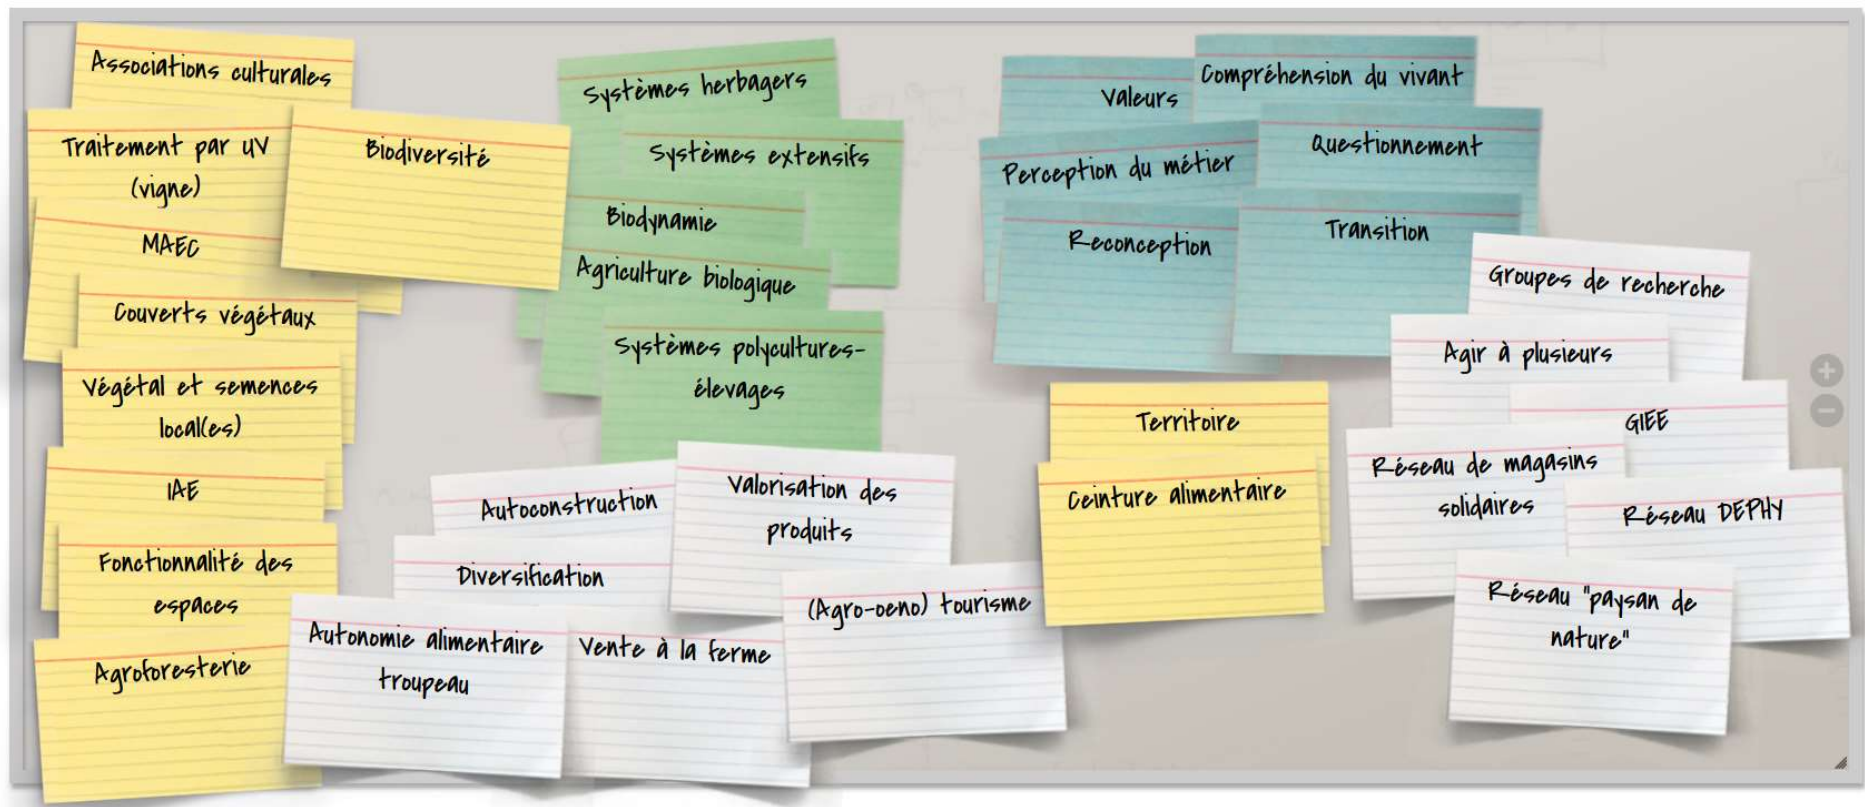 Associations culturales
Traitement par UV
(vigne)
Biodiversité
MAEC
Couverts végétaux
Végétal et semences
local(es)
IAE
Fonctionnalité des
espaces
Agroforesterie
Systèmes herbagers
Systèmes extensifs
Biodynamie
Agriculture biologique
Systèmes polycultures-
élevages
Autoconstruction
Valorisation des
produits
Diversification
(Agro-oeno) tourisme
Autonomie alimentaire
troupeau
Vente à la ferme
Valeurs
Compréhension du vivant
Perception du métier
Questionnement
Reconception
Transition
Territoire
Ceinture alimentaire
Groupes de recherche
Agir à plusieurs
GIEE
Réseau de magasins
solidaires
Réseau DEPHY
Réseau "paysan de
nature"